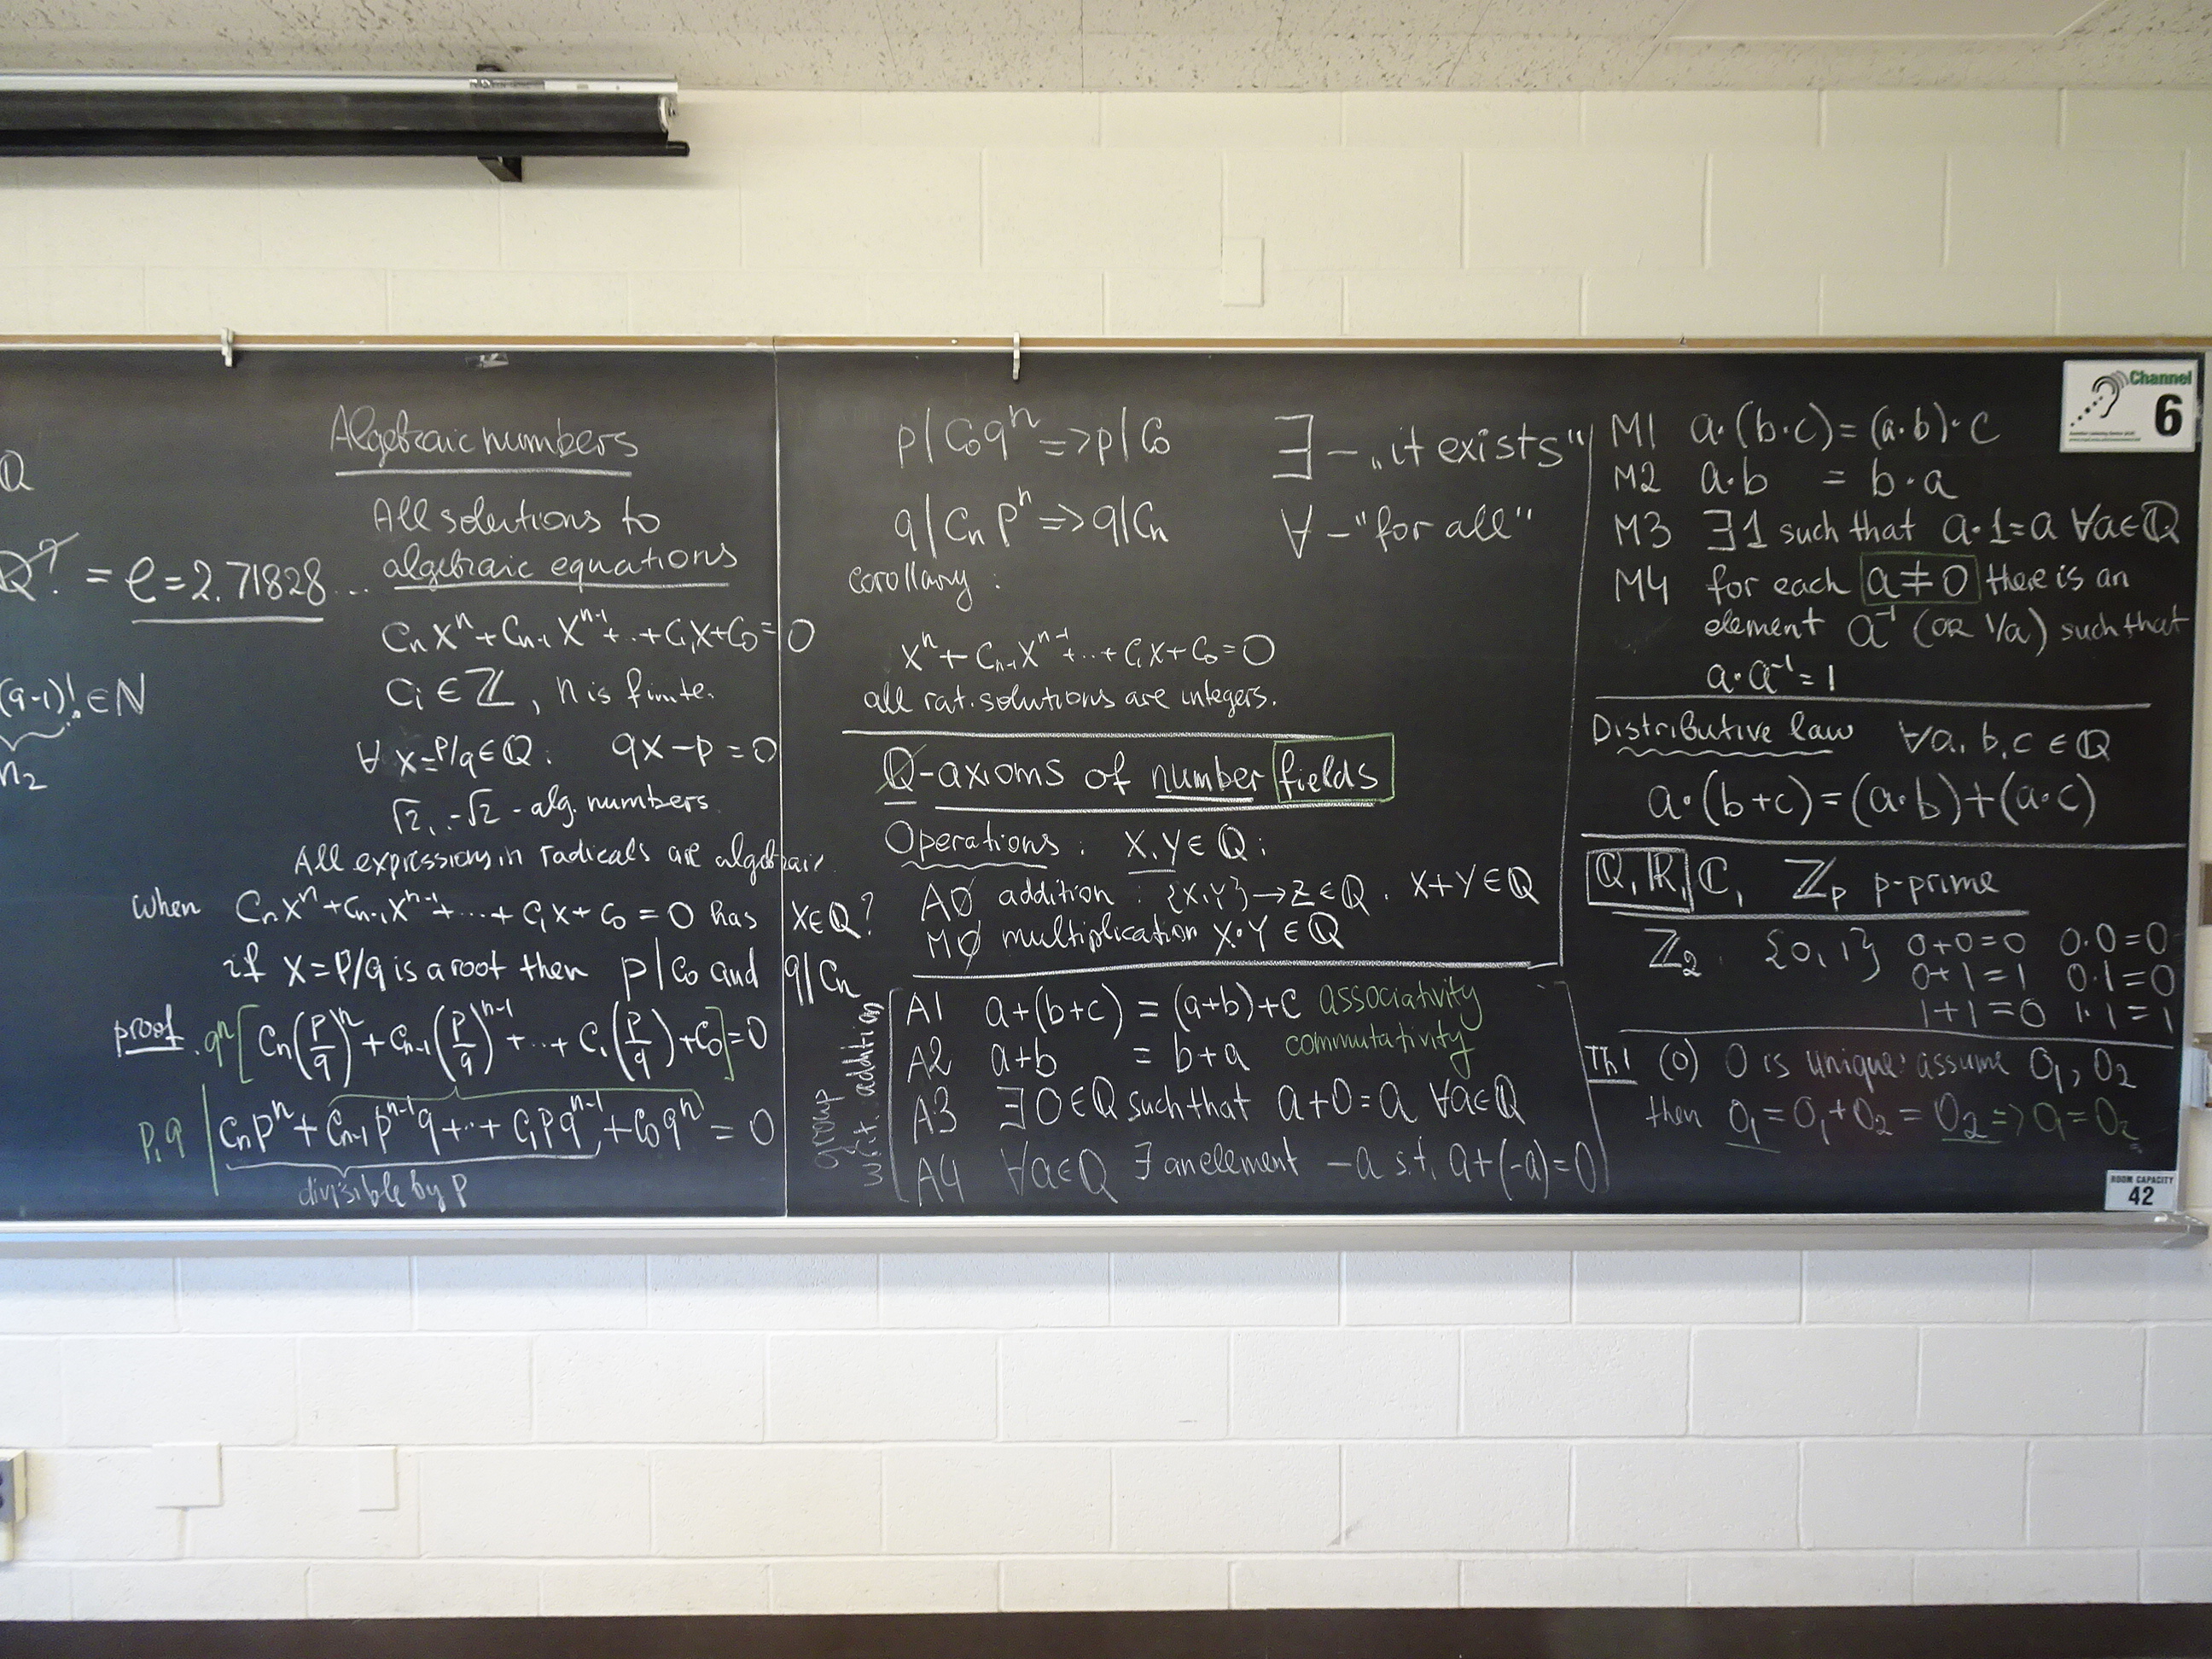 Q
Q? = e=2.71828...
(q-1)! ∈ N
n₂
Algebraic numbers
All solutions to
algebraic equations
Cₙxⁿ+Cₙ₋₁xⁿ⁻¹+..+C₁x+C₀=0
Cᵢ∈ℤ, n is finite.
∀ x=p/q∈ℚ: qx-p=0
√2, -√2 - alg. numbers
All expressions in radicals are algebraic.
When Cₙxⁿ+Cₙ₋₁xⁿ⁻¹+...+C₁x+C₀=0 has x∈ℚ?
if x=p/q is a root then p|C₀ and q|Cₙ
proof. qⁿ[Cₙ(p/q)ⁿ+Cₙ₋₁(p/q)ⁿ⁻¹+..+C₁(p/q)+C₀]=0
p,q | Cₙpⁿ+Cₙ₋₁pⁿ⁻¹q+..+C₁pqⁿ⁻¹+C₀qⁿ=0
divisible by p
p|C₀qⁿ=>p|C₀
q|Cₙpⁿ=>q|Cₙ
∃ - „it exists"
∀ - "for all"
corollary:
xⁿ+Cₙ₋₁xⁿ⁻¹+..+C₁x+C₀=0
all rat. solutions are integers.
ℚ-axioms of number fields
Operations: x,y∈ℚ:
A0 addition: {x,y}→z∈ℚ. x+y∈ℚ
M0 multiplication x·y∈ℚ
group
w.r.t. addition
A1 a+(b+c)=(a+b)+c associativity
A2 a+b = b+a commutativity
A3 ∃0∈ℚ such that a+0=a ∀a∈ℚ
A4 ∀a∈ℚ ∃ an element -a s.t. a+(-a)=0
M1 a·(b·c)=(a·b)·c
M2 a·b = b·a
M3 ∃1 such that a·1=a ∀a∈ℚ
M4 for each a≠0 there is an
element a⁻¹ (OR 1/a) such that
a·a⁻¹=1
Distributive law ∀a,b,c∈ℚ
a·(b+c)=(a·b)+(a·c)
ℚ, ℝ, ℂ, ℤₚ p-prime
ℤ₂. {0,1} 0+0=0 0·0=0
0+1=1 0·1=0
1+1=0 1·1=1
Th1 (0) 0 is unique: assume 0₁, 0₂
then 0₁=0₁+0₂=0₂=>0₁=0₂
Channel
6
ROOM CAPACITY
42